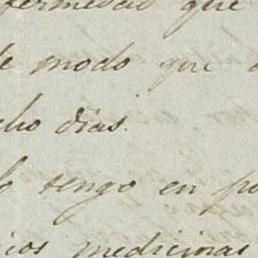 fermedad que
de modo que
cho dias.
lo tengo en po
cios medicinas